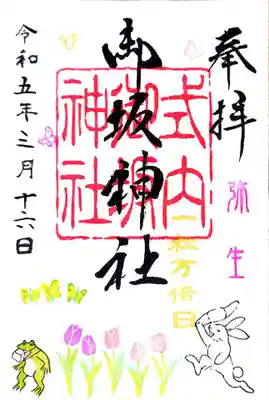 奉拝
弥生
一粒万倍日
式内
御坂神社
御坂神社
令和五年三月十六日